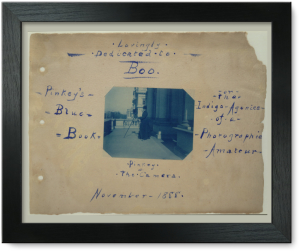 - Lovingly -
- Dedicated - to -
Boo.
- Pinkey's -
- Blue -
- Book. -
- or -
- The -
- Indigo - Agonies -
- of - a -
- Photographic -
- Amateur -
- Pinkey -
November - 1888. -